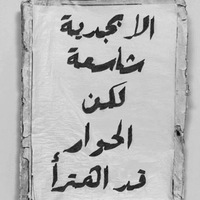 الأبجدية
شاسعة
لكن
الحوار
قد اهترأ